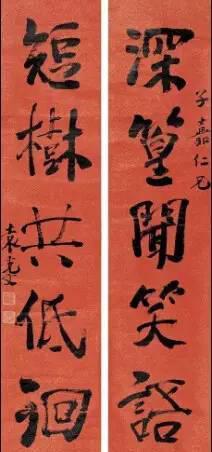 子嘉仁兄
深篁聞笑語
短樹共低徊
袁克文